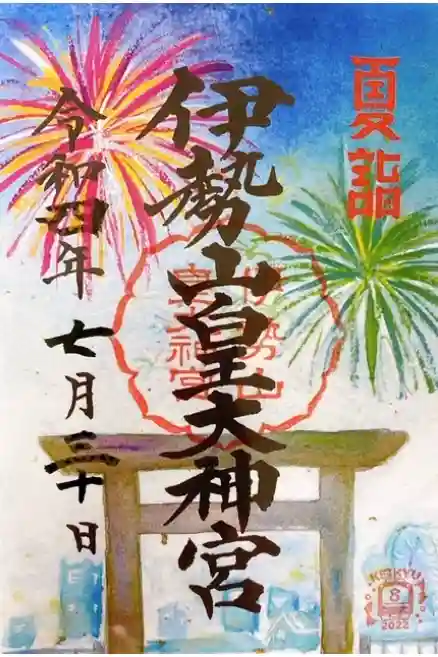 夏詣
伊勢山皇大神宮
令和四年
七月三十日
伊勢山
皇大神宮
KEIKYU
8
2022